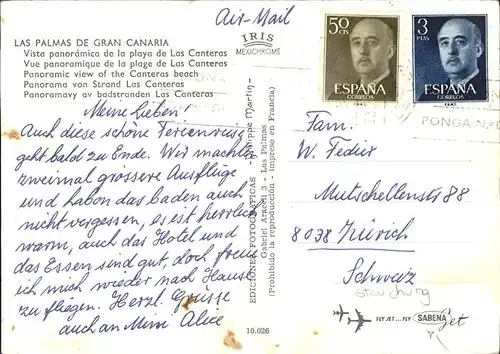 Air-Mail
LAS PALMAS DE GRAN CANARIA
Vista panorámica de la playa de Las Canteras
Vue panoramique de la plage de Las Canteras
Panoramic view of the Canteras beach
Panorama von Strand Las Canteras
Panoramavy av badstranden Las Canteras
IRIS
MEXICHROME
Meine Lieben!
Auch diese schöne Ferienreise
geht bald zu Ende. Wir machten
zweimal grossere Ausflüge
und haben das baden auch
nicht vergessen, es ist herrlich
warm, auch das Hotel und
das Essen sind gut, doch freue
ich mich wieder nach Hause
zu fliegen. Herzl. Grüsse
auch an Mimi Alice
EDICIONES FOTOGRAFICAS - Philippe Martin -
Gabriel Aracel 3 - Las Palmas
(Prohibida la reproducción - impreso en Francia)
10.026
50
CTS
ESPAÑA
CORREOS
3
PTAS
ESPAÑA
CORREOS
PONGA N.º
Fam.
W. Fedier
Mutschellenstr 88
8038 Zürich
Schweiz
FLY JET...FLY SABENA Jet